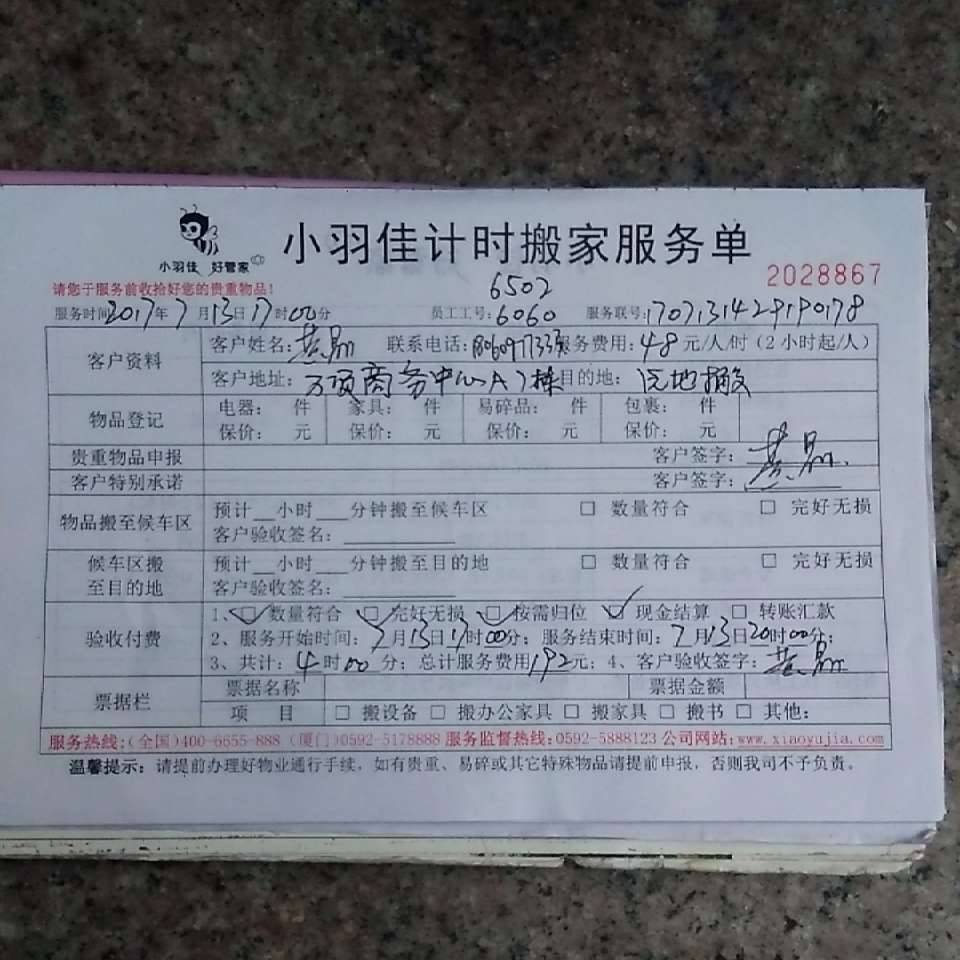 小羽佳 好管家
小羽佳计时搬家服务单
2028867
请您于服务前收拾好您的贵重物品!
6502
服务时间2017年7月13日17时00分 员工工号:6060 服务联号:1707131429190178
客户资料
客户姓名: 联系电话: 服务费用:48元/人/时(2小时起/人)
客户地址: 万顷商务中心A1栋 目的地: 原地搬
物品登记
电器: 件 家具: 件 易碎品: 件 包裹: 件
保价: 元 保价: 元 保价: 元 保价: 元
贵重物品申报 客户签字:
客户特别承诺 客户签字:
物品搬至候车区
预计__小时___分钟搬至候车区 □ 数量符合 □ 完好无损
客户验收签名:
候车区搬至目的地
预计__小时___分钟搬至目的地 □ 数量符合 □ 完好无损
客户验收签名:
验收付费
1、☑数量符合 ☑完好无损 ☑按需归位 ☑现金结算 □ 转账汇款
2、服务开始时间:7月13日17时00分; 服务结束时间:7月13日20时00分;
3、共计:4时00分; 总计服务费用192元; 4、客户验收签字:
票据栏
票据名称 票据金额
项 目 □ 搬设备 □ 搬办公家具 □ 搬家具 □ 搬书 □ 其他:
服务热线:(全国)400-6655-888 (厦门)0592-5178888 服务监督热线:0592-5888123 公司网站:www.xiaoyujia.com
温馨提示: 请提前办理好物业通行手续,如有贵重、易碎或其它特殊物品请提前申报,否则我司不予负责。